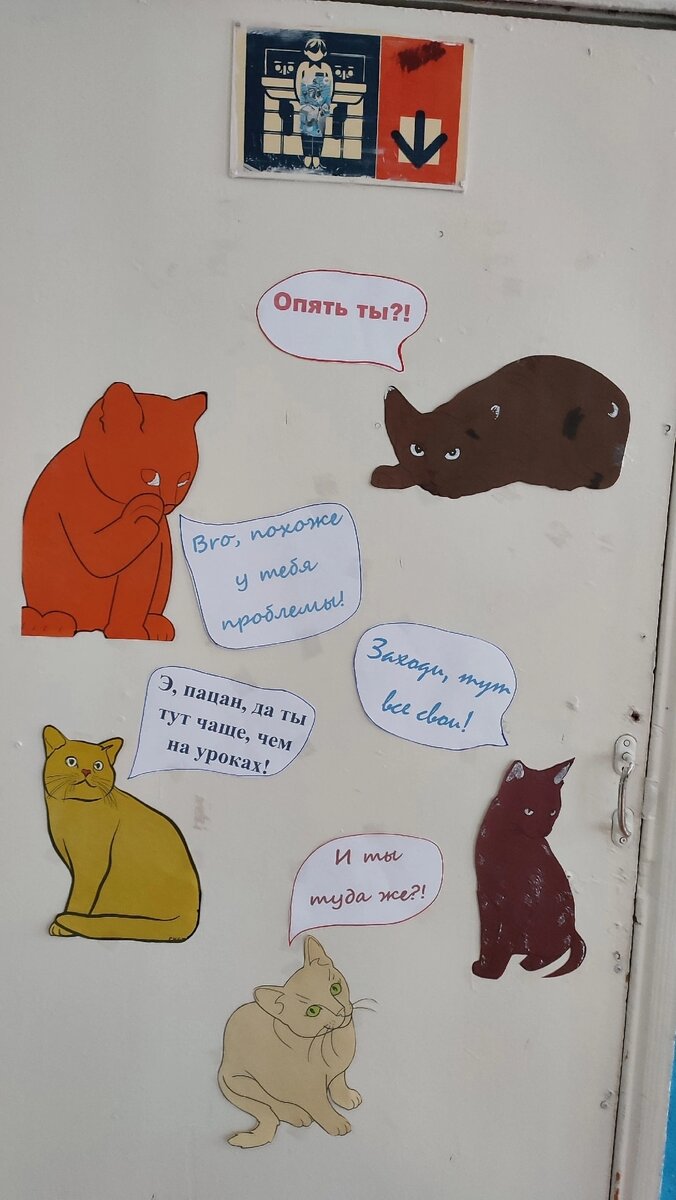 Опять ты?!
Bro, похоже
у тебя
проблемы!
Заходи, тут
все свои!
Э, пацан, да ты
тут чаще, чем
на уроках!
И ты
туда же?!